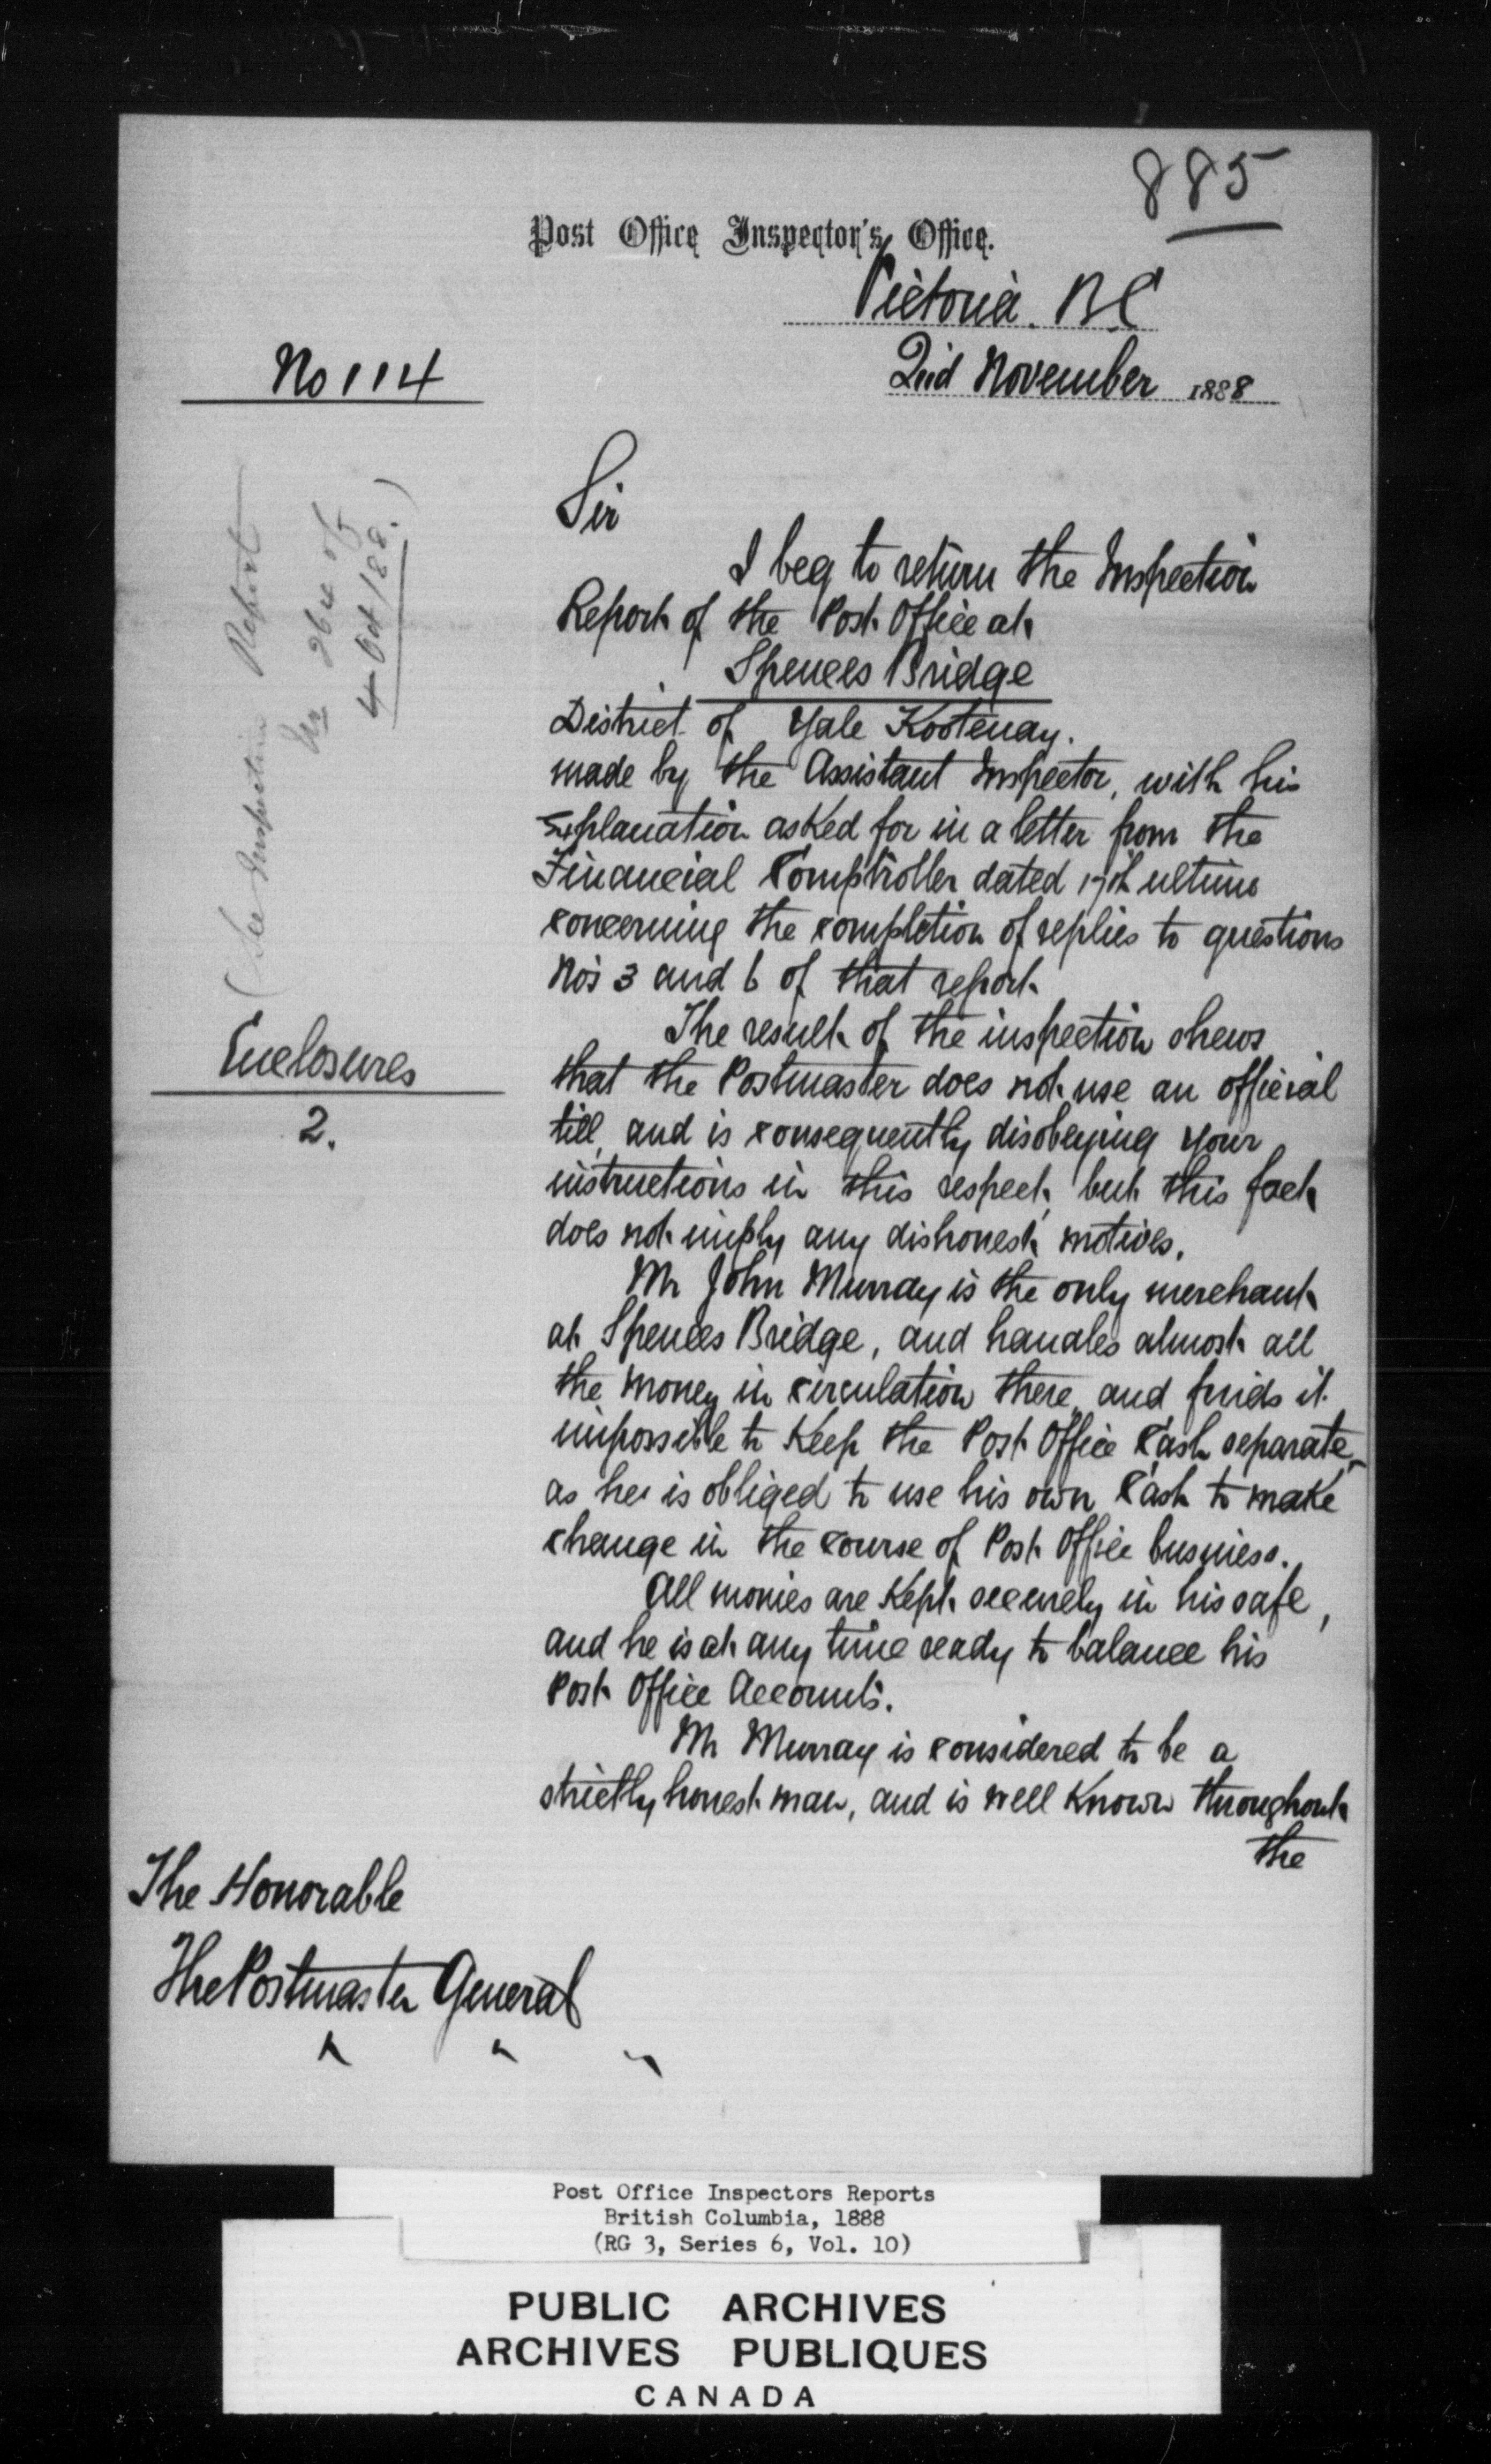 885
Post Office Inspector's Office.
Victoria. BC
2nd November 1888
No 114
(See Inspection Report
No 264 of
4 Oct/88.)
Sir
I beg to return the Inspection
Report of the Post Office at
Spences Bridge
District of Yale Kootenay.
made by the Assistant Inspector, with his
Explanation asked for in a letter from the
Financial Comptroller dated 17th ultimo
concerning the completion of replies to questions
Nos 3 and 6 of that report.
Enclosures
2.
The result of the inspection shews
that the Postmaster does not use an official
till, and is consequently disobeying your
instructions in this respect, but this fact
does not imply any dishonest motives.
Mr John Murray is the only merchant
at Spences Bridge, and handles almost all
the money in circulation there, and finds it
impossible to keep the Post Office Cash separate,
as he is obliged to use his own Cash to make
change in the course of Post Office business.
All monies are Kept securely in his safe,
and he is at any time ready to balance his
Post Office Accounts.
Mr Murray is considered to be a
strictly honest man, and is well Known throughout
the
The Honorable
The Postmaster General
Post Office Inspectors Reports
British Columbia, 1888
(RG 3, Series 6, Vol. 10)
PUBLIC ARCHIVES
ARCHIVES PUBLIQUES
CANADA